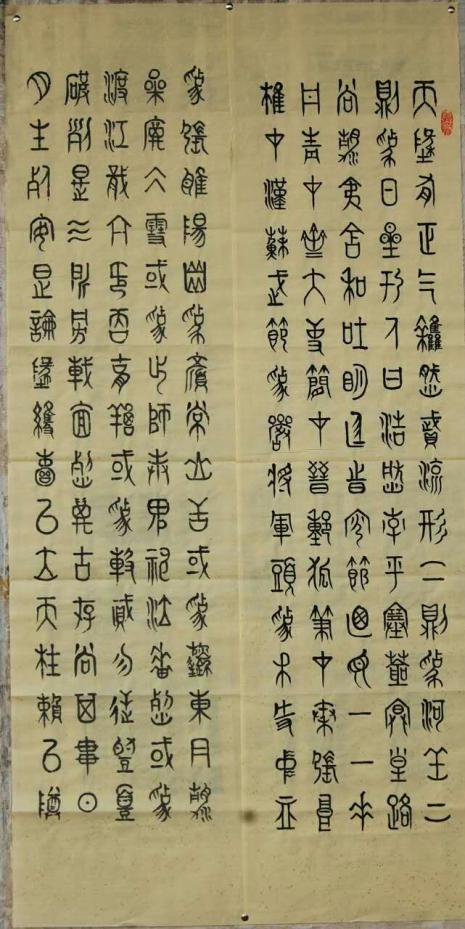 天地有正气雜然賦流形下則為河嶽上
則為日星於人曰浩然沛乎塞蒼冥皇路
當清夷含和吐明庭時窮節乃見一一垂
丹青在齊太史簡在晉董狐筆在秦張良
椎在漢蘇武節為嚴將軍頭為嵇侍中血
為張睢陽齒為顏常山舌或為遼東帽清
操厲冰雪或為出師表鬼神泣壯烈或為
渡江楫慷慨吞胡羯或為擊賊笏逆豎頭
破裂是氣所磅礴凜烈萬古存當其貫日
月生死安足論地維賴以立天柱賴以尊